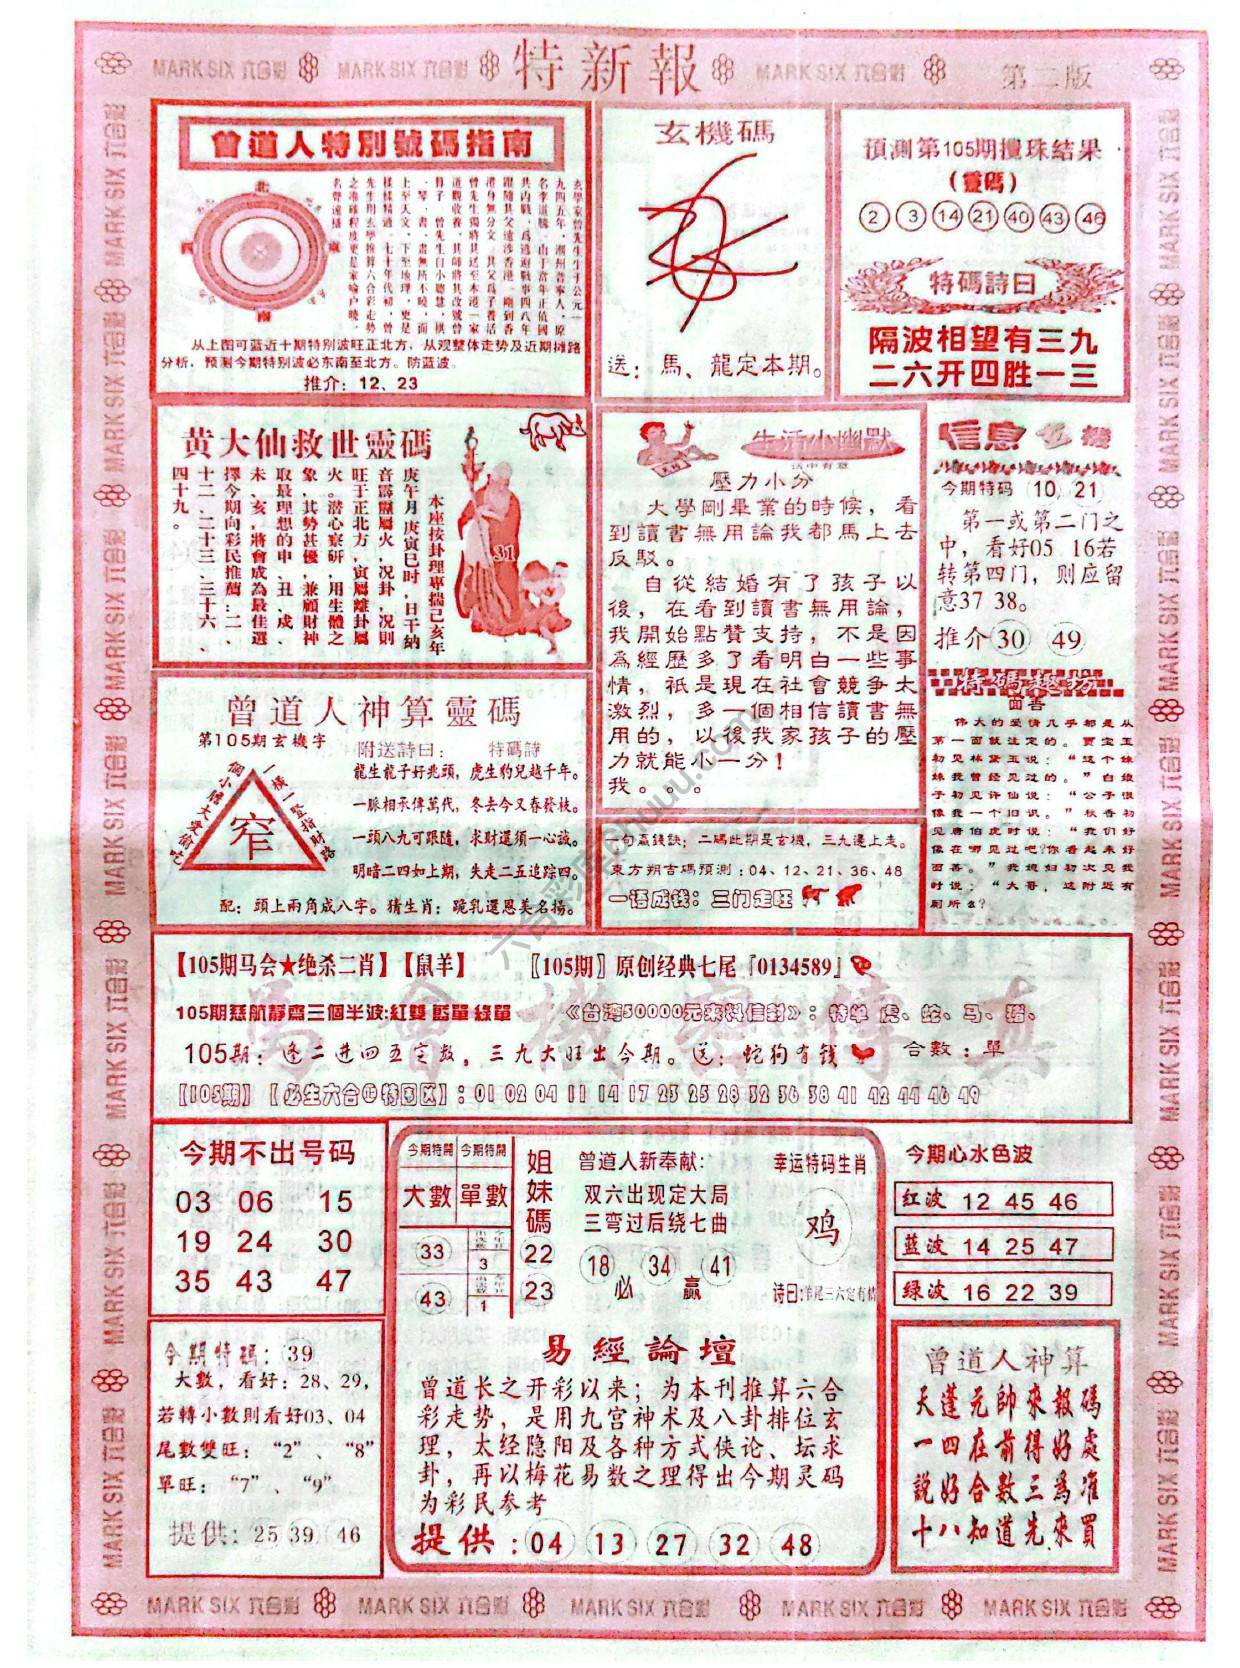 特新報
第二版
MARK SIX 六合彩
曾道人特別號碼指南
北
西
南
玄學家曾先生生于公元一
九四五年，潮州普寧人，原
名李道騰。由于當年正值國
共內戰，爲逃避戰事四八年
跟隨其父遠涉香港。
名聲遠播。
从上图可蓝近十期特别波旺正北方，从观整体走势及近期摊路
分析，预测今期特别波必东南至北方。防蓝波。
推介：12、23
玄機碼
送：馬、龍定本期。
預測第105期攪珠結果
(靈碼)
2 3 14 21 40 43 46
特碼詩曰
隔波相望有三九
二六开四胜一三
黄大仙救世靈碼
本座按卦理專揣己亥年
庚午月 庚寅巳时，日干納
音霹靂屬火，况卦，况則
旺于正北方，寅屬離卦屬
火。潜心察研，用生體之
象，其勢甚優，兼顧財神
取最理想的申、丑、戌、
未、亥，將會成為最佳選
擇今期向彩民推薦：二、
十二、二十三、三十六、
四十九。
31
生活小幽默
笑中有意
壓力小分
大學剛畢業的時候，看
到讀書無用論我都馬上去
反駁。
自從結婚有了孩子以
後，在看到讀書無用論，
我開始點贊支持，不是因
爲經歷多了看明白一些事
情，祇是現在社會競争太
激烈，多一個相信讀書無
用的，以後我家孩子的壓
力就能小一分！
我。。。
信息
機
今期特码 10, 21
第一或第二门之
中，看好05 16若
转第四门，则应留
意37 38。
推介 30 49
特碼趣坊
面善
伟大的爱情几乎都是从
第一面就注定的。贾宝玉
初见林黛玉说：“这个妹
妹我曾经见过的。”白娘
子初见许仙说：“公子很
像我一个旧识。”秋香初
见唐伯虎时说：“我们好
像在哪见过吧?你看起来好
面善。”我媳妇初次见我
时说：“大哥，这附近有
厕所么？
曾道人神算靈碼
第105期玄機字
附送詩曰： 特碼詩
一横一竪指財路
個小膽大愛偷吃
窄
龍生龍子好兆頭，虎生豹兒越千年。
一脈相承傳萬代，冬去今又春發枝。
一頭八九可跟隨，求財還須一心誠。
明暗二四如上期，失走二五追踪四。
配：頭上兩角成八字。猜生肖：跪乳還恩美名揚。
一句贏錢訣：二碼此期是玄機，三九邊上走。
東方朔吉碼預測：04、12、21、36、48
一语成钱：三门走旺
馬會機密傳真
【105期马会★绝杀二肖】【鼠羊】
〖105期〗原创经典七尾『0134589』
105期慈航靜齋三個半波:紅雙 藍單 綠單
《台湾50000元来料信封》：特单 虎、蛇、马、猪、
105期：逢二进四五定数，三九大旺出今期。送：蛇狗有钱
合數：單
【105期】【必生六合㊥特围区】：01 02 04 11 14 17 23 25 28 32 36 38 41 42 44 46 49
今期不出号码
03 06 15
19 24 30
35 43 47
今期特開
大數
33
43
今期特開
單數
3
1
姐妹碼
22
23
曾道人新奉献：
双六出现定大局
三弯过后绕七曲
18 34 41
必 赢
幸运特码生肖
鸡
诗曰:羊尾三六定有情
今期心水色波
红波 12 45 46
蓝波 14 25 47
绿波 16 22 39
今期特碼：39
大數，看好：28、29，
若轉小數則看好03、04
尾數雙旺：“2”、“8”
單旺：“7”、“9”
提供：25 39 46
易經論壇
曾道长之开彩以来；为本刊推算六合
彩走势，是用九宫神术及八卦排位玄
理，太经隐阳及各种方式侠论、坛求
卦，再以梅花易数之理得出今期灵码
为彩民参考
提供：04 13 27 32 48
曾道人神算
天蓬元帥來報碼
一四在前得好處
說好合數三爲准
十八知道先來買
MARK SIX 六合彩